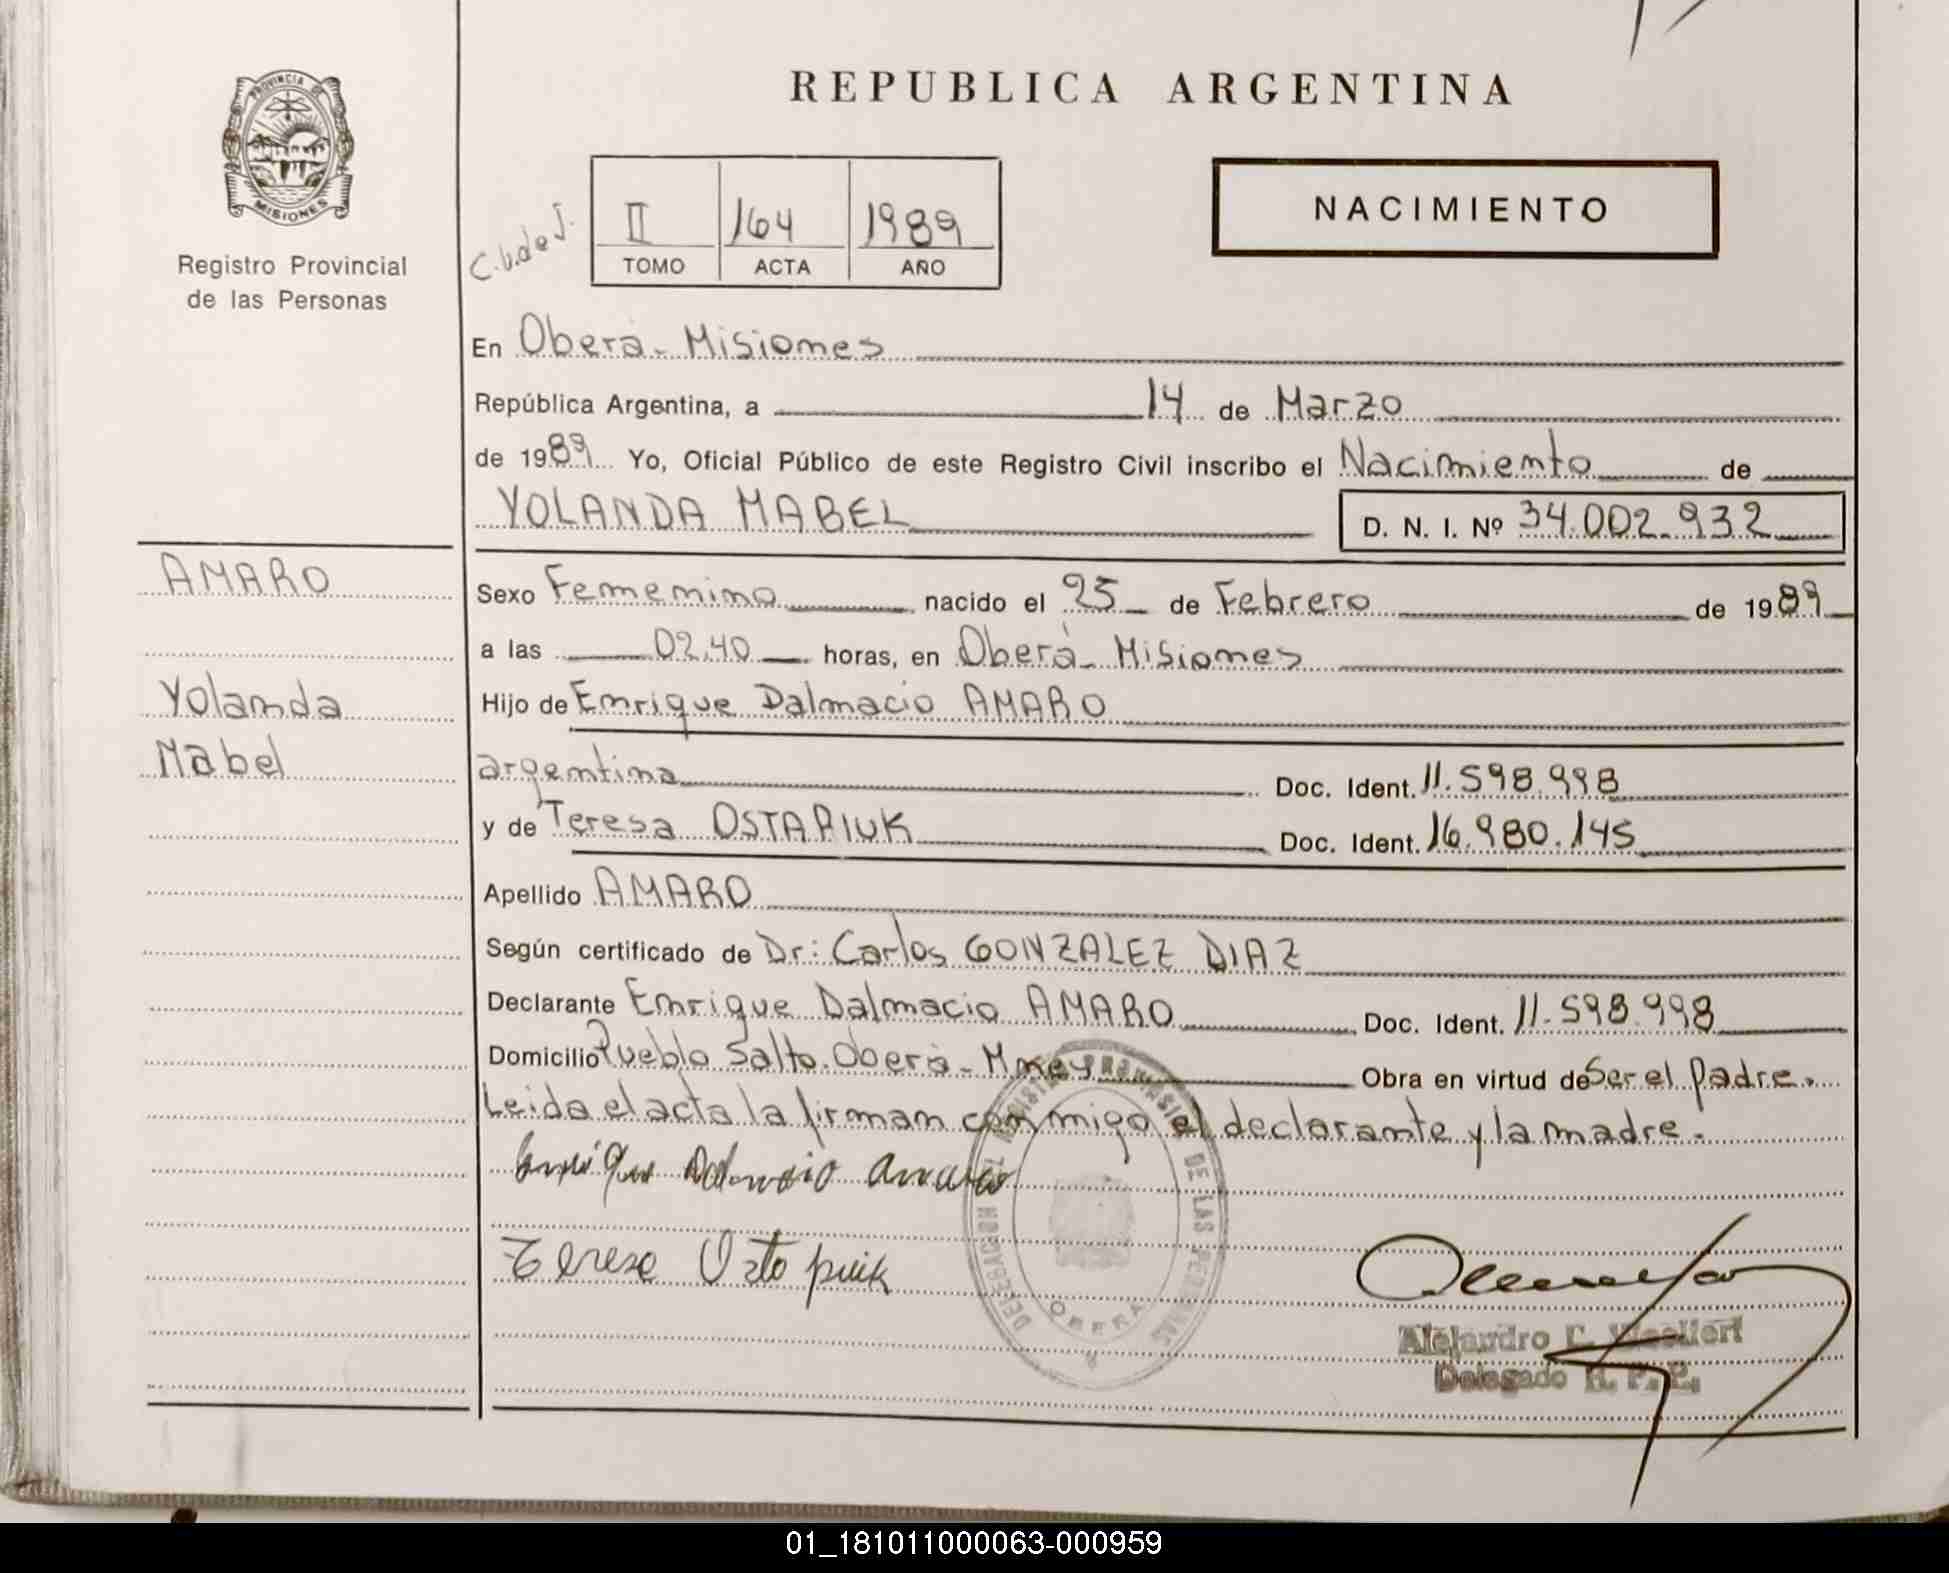 REPUBLICA ARGENTINA
PROVINCIA DE
MISIONES
Registro Provincial
de las Personas
II 164 1989
TOMO ACTA AÑO
NACIMIENTO
En Oberá - Misiones
República Argentina, a 14 de Marzo
de 1989 Yo, Oficial Público de este Registro Civil inscribo el Nacimiento de
YOLANDA MABEL D. N. I. Nº 34.002.932
AMARO
Yolanda
Mabel
Sexo Femenino nacido el 25 de Febrero de 1989
a las 02,40 horas, en Oberá - Misiones
Hijo de Enrique Dalmacio AMARO
argentina Doc. Ident. 11.598.998
y de Teresa OSTAPIUK Doc. Ident. 16.980.145
Apellido AMARO
Según certificado de Dr: Carlos GONZALEZ DIAZ
Declarante Enrique Dalmacio AMARO Doc. Ident. 11.598.998
Domicilio Pueblo Salto. Oberá - Obra en virtud de Ser el padre.
Leida el acta la firman conmigo el declarante y la madre.
Enrique Dalmacio Amaro
Terese Ostapiuk
DELEGACION REGISTRO PROVINCIAL DE LAS PERSONAS
OBERA
Alejandro
Delegado R. P. P.
01_181011000063-000959